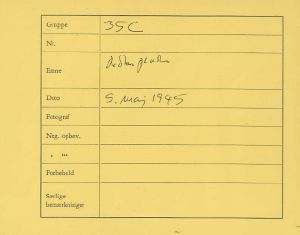 Gruppe 35C
Nr.
Emne
Dato 5. maj 1945
Fotograf
Neg. opbev.
" "
Forbehold
Særlige
bemærkninger